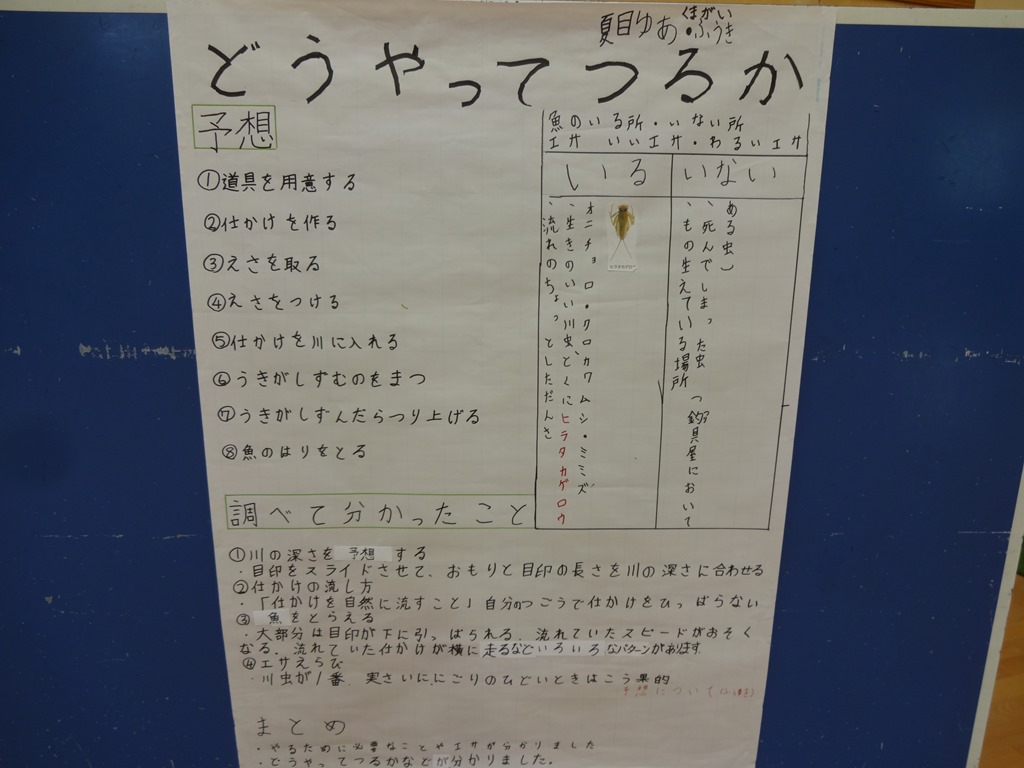 夏目ゆあ・くまがいふうき
どうやってつるか
予想
①道具を用意する
②仕かけを作る
③えさを取る
④えさをつける
⑤仕かけを川に入れる
⑥うきがしずむのをまつ
⑦うきがしずんだらつり上げる
⑧魚のはりをとる
魚のいる所・いない所
エサ いいエサ・わるいエサ
いる
オニチョロ・クロカワムシ・ミミズ
、生きのいい川虫、とくにヒラタカゲロウ
、流れのちょっとしただんさ
いない
ある虫)
、死んでしまった虫(釣具屋において
、もの生えている場所
調べて分かったこと
①川の深さを予想する
・目印をスライドさせて、おもりと目印の長さを川の深さに合わせる
②仕かけの流し方
・「仕かけを自然に流すこと」自分のつごうで仕かけをひっぱらない
③魚をとらえる
・大部分は目印が下に引っぱられる、流れていたスピードがおそく
なる、流れていた仕かけが横に走るなどいろいろなパターンがあります
④エサえらび
・川虫が1番、実さいににごりのひどいときはこう果的
予想について
まとめ
・やるために必要なことやエサが分かりました
・どうやってつるかなどが分かりました。